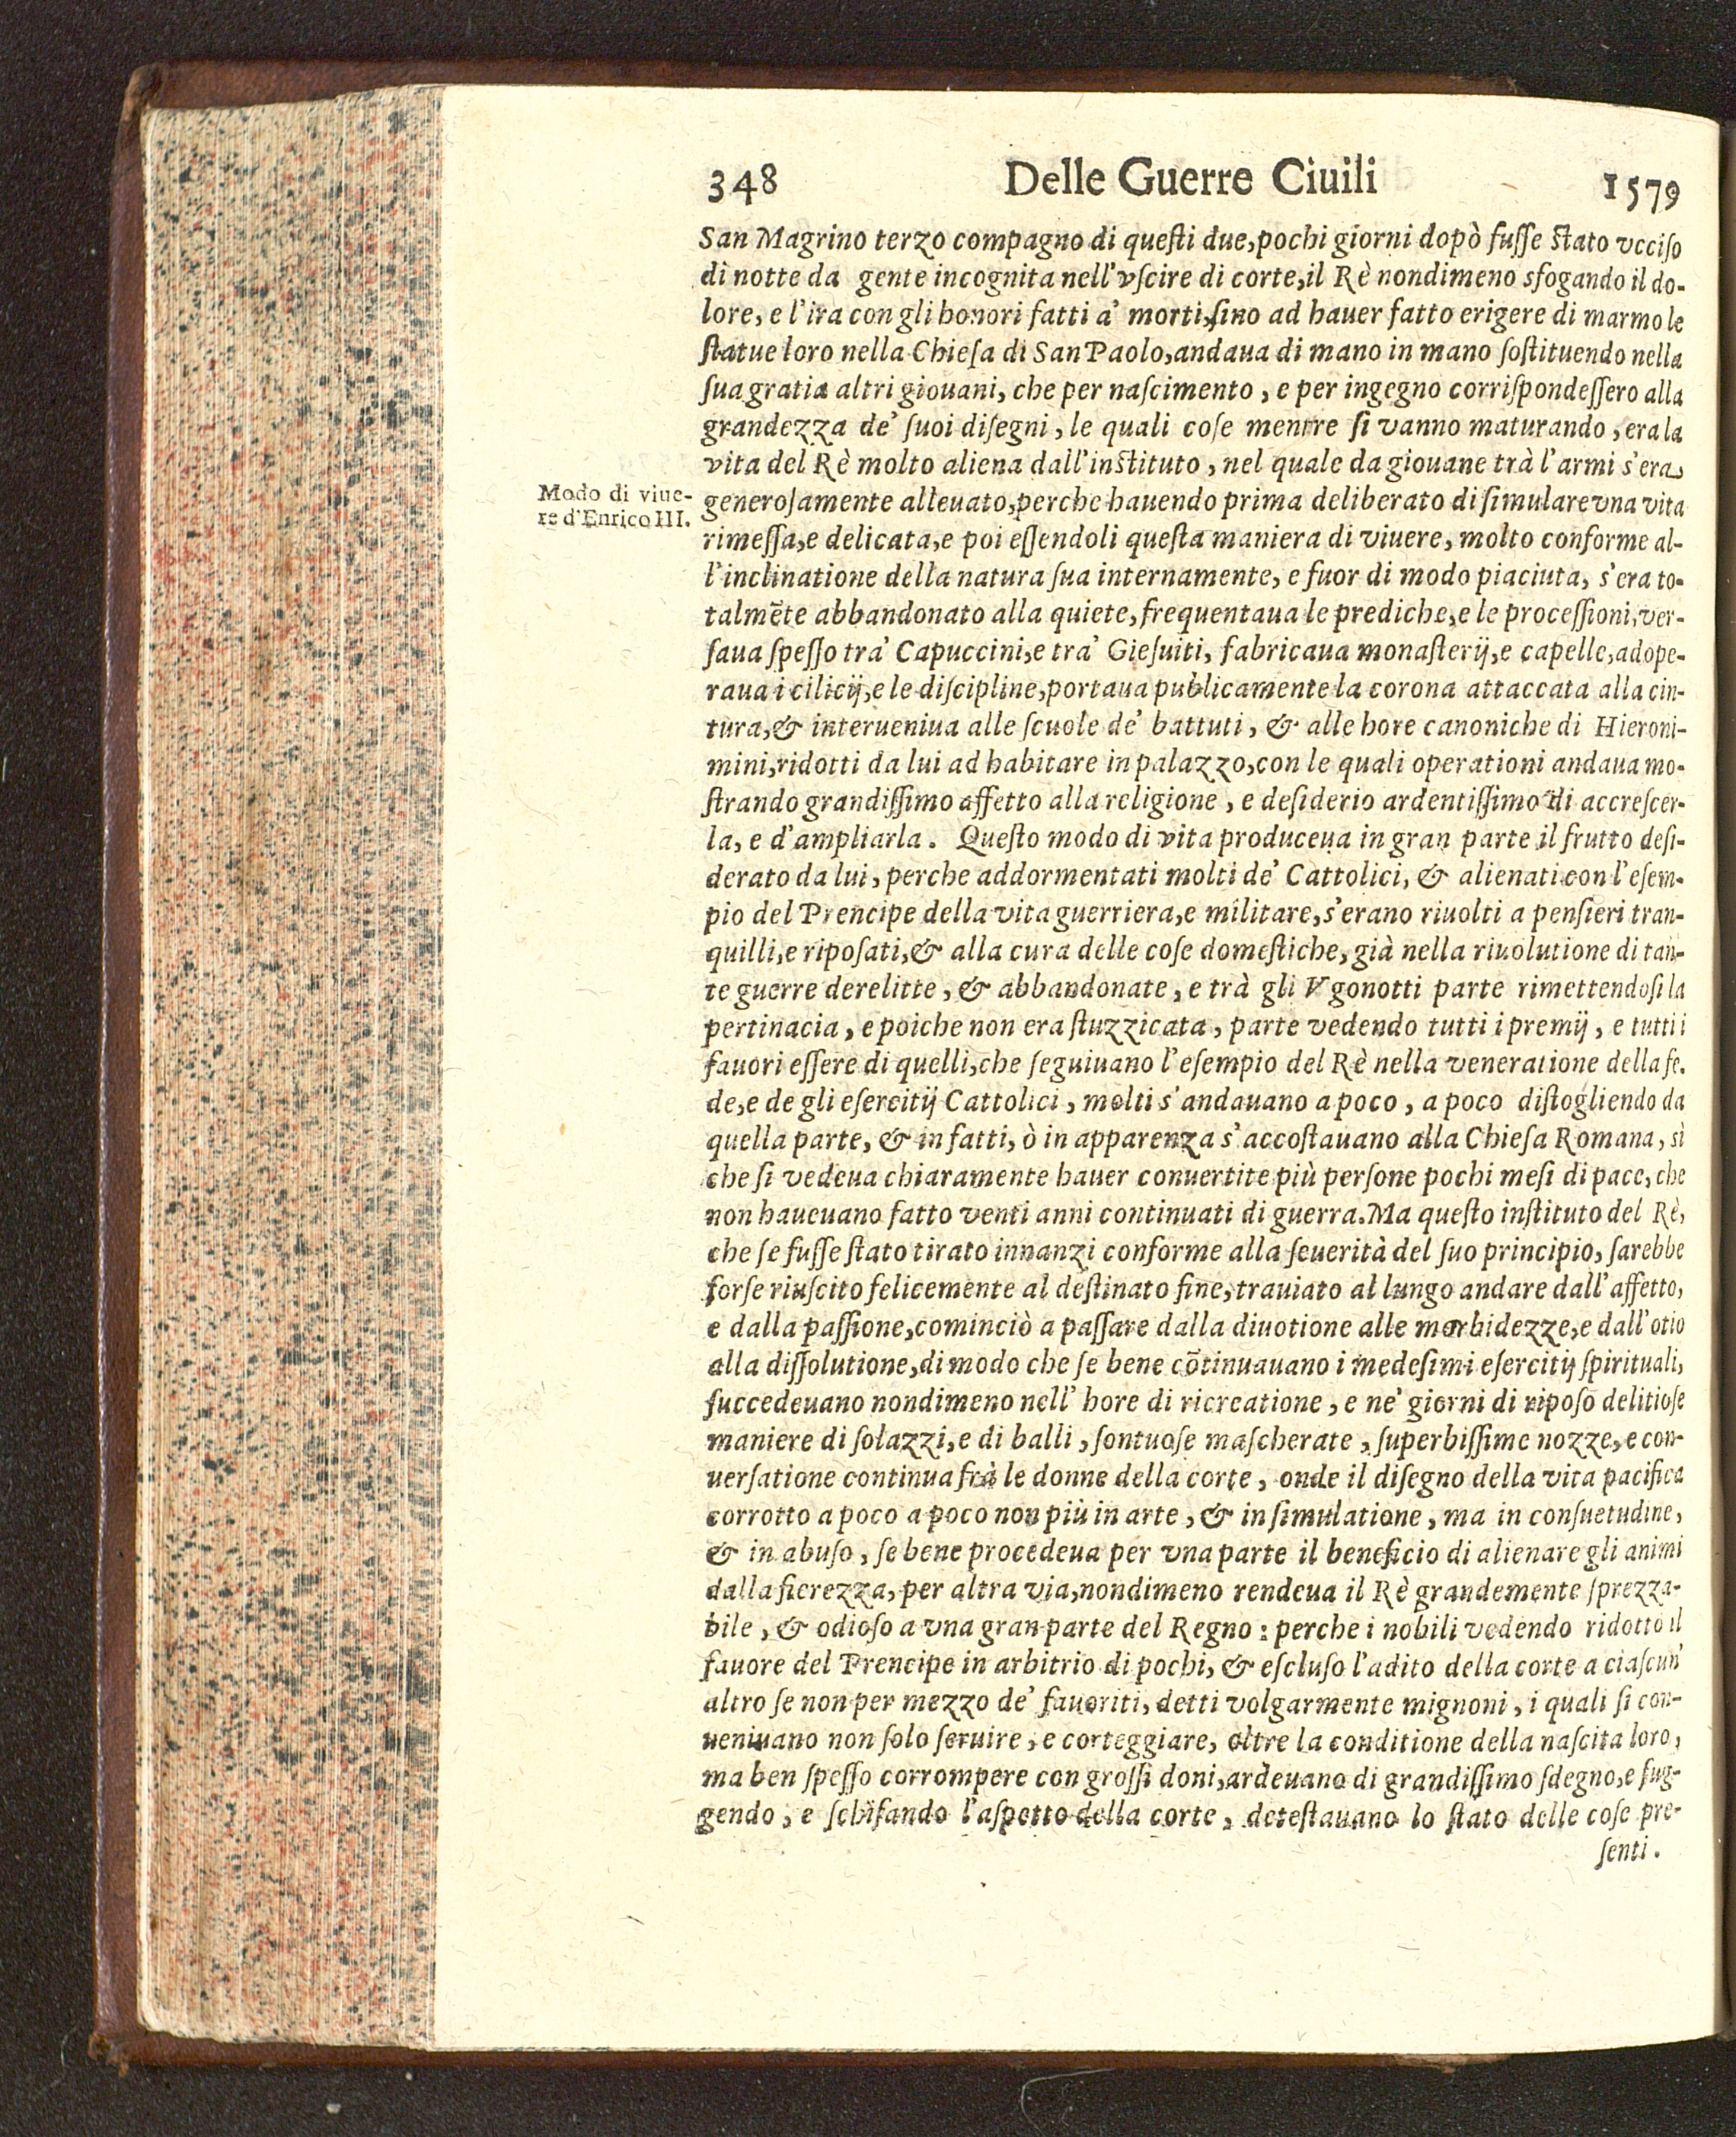 348 Delle Guerre Ciuili 1579
San Magrino terzo compagno di queſti due, pochi giorni dopò fuſſe ſtato vcciſo
di notte da gente incognita nell'vſcire di corte, il Rè nondimeno sfogando il do-
lore, e l'ira con gli honori fatti a' morti, ſino ad hauer fatto erigere di marmo le
ſtatue loro nella Chieſa di San Paolo, andaua di mano in mano ſoſtituendo nella
ſua gratia altri giouani, che per naſcimento, e per ingegno corriſpondeſſero alla
grandezza de' ſuoi diſegni, le quali coſe mentre ſi vanno maturando, era la
vita del Rè molto aliena dall'inſtituto, nel quale da giouane trà l'armi s'era
Modo di viue-
re d'Enrico III.
generoſamente alleuato, perche hauendo prima deliberato di ſimulare vna vita
rimeſſa, e delicata, e poi eſſendoli queſta maniera di viuere, molto conforme al-
l'inclinatione della natura ſua internamente, e fuor di modo piaciuta, s'era to-
talmẽte abbandonato alla quiete, frequentaua le prediche, e le proceſſioni, ver-
ſaua ſpeſſo tra' Capuccini, e tra' Gieſuiti, fabricaua monaſterij, e capelle, adope-
raua i cilicij, e le diſcipline, portaua publicamente la corona attaccata alla cin-
tura, & interueniua alle ſcuole de' battuti, & alle hore canoniche di Hieroni-
mini, ridotti da lui ad habitare in palazzo, con le quali operationi andaua mo-
ſtrando grandiſſimo affetto alla religione, e deſiderio ardentiſſimo di accreſcer-
la, e d'ampliarla. Queſto modo di vita produceua in gran parte il frutto deſi-
derato da lui, perche addormentati molti de' Cattolici, & alienati con l'eſem-
pio del Prencipe della vita guerriera, e militare, s'erano riuolti a penſieri tran-
quilli, e ripoſati, & alla cura delle coſe domeſtiche, già nella riuolutione di tan-
te guerre derelitte, & abbandonate, e trà gli Vgonotti parte rimettendoſi la
pertinacia, e poiche non era ſtuzzicata, parte vedendo tutti i premij, e tutti i
fauori eſſere di quelli, che ſeguiuano l'eſempio del Rè nella veneratione della fe.
de, e de gli eſercitij Cattolici, molti s'andauano a poco, a poco diſtogliendo da
quella parte, & in fatti, ò in apparenza s'accoſtauano alla Chieſa Romana, sì
che ſi vedeua chiaramente hauer conuertite più perſone pochi meſi di pace, che
non haueuano fatto venti anni continuati di guerra. Ma queſto inſtituto del Rè,
che ſe fuſſe ſtato tirato innanzi conforme alla ſeuerità del ſuo principio, ſarebbe
forſe riuſcito felicemente al deſtinato fine, trauiato al lungo andare dall'affetto,
e dalla paſſione, cominciò a paſſare dalla diuotione alle morbidezze, e dall'otio
alla diſſolutione, di modo che ſe bene cõtinuauano i medeſimi eſercitij ſpirituali,
ſuccedeuano nondimeno nell'hore di ricreatione, e ne' giorni di ripoſo delitioſe
maniere di ſolazzi, e di balli, ſontuoſe maſcherate, ſuperbiſſime nozze, e con-
uerſatione continua frà le donne della corte, onde il diſegno della vita pacifica
corrotto a poco a poco non più in arte, & in ſimulatione, ma in conſuetudine,
& in abuſo, ſe bene procedeua per vna parte il beneficio di alienare gli animi
dalla fierezza, per altra via, nondimeno rendeua il Rè grandemente ſprezza-
bile, & odioſo a vna gran parte del Regno: perche i nobili vedendo ridotto il
fauore del Prencipe in arbitrio di pochi, & eſcluſo l'adito della corte a ciaſcun'
altro ſe non per mezzo de' fauoriti, detti volgarmente mignoni, i quali ſi con-
ueniuano non ſolo ſeruire, e corteggiare, oltre la conditione della naſcita loro,
ma ben ſpeſſo corrompere con groſſi doni, ardeuano di grandiſſimo ſdegno, e fug-
gendo, e ſchifando l'aſpetto della corte, deteſtauano lo ſtato delle coſe pre-
ſenti.